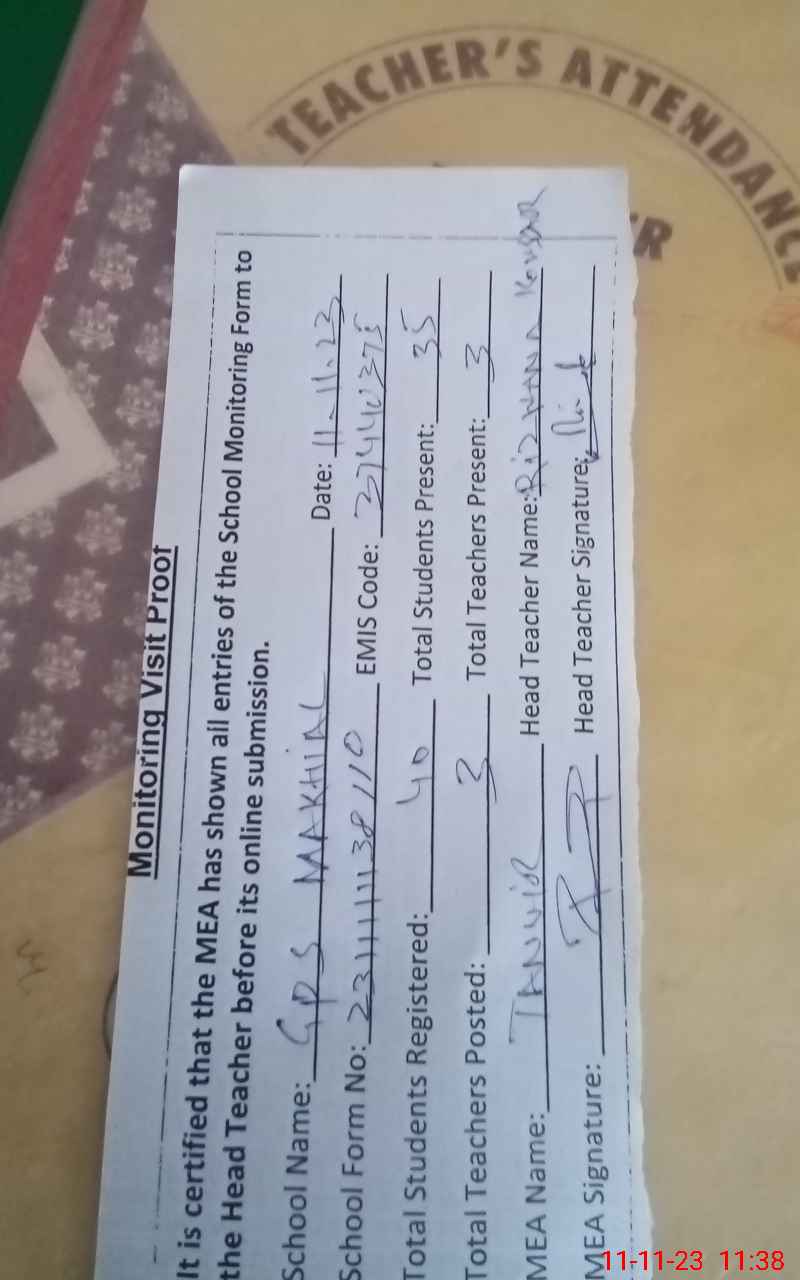 TEACHER'S ATTENDANCE
Monitoring Visit Proof
It is certified that the MEA has shown all entries of the School Monitoring Form to
the Head Teacher before its online submission.
School Name: GPS MAKHIAL Date: 11-11.23
School Form No: 23111111138110 EMIS Code: 37440375
Total Students Registered: 40 Total Students Present: 35
Total Teachers Posted: 3 Total Teachers Present: 3
MEA Name: TANVIR Head Teacher Name: RIZWANA Kousar
MEA Signature: Head Teacher Signature:
11-11-23 11:38